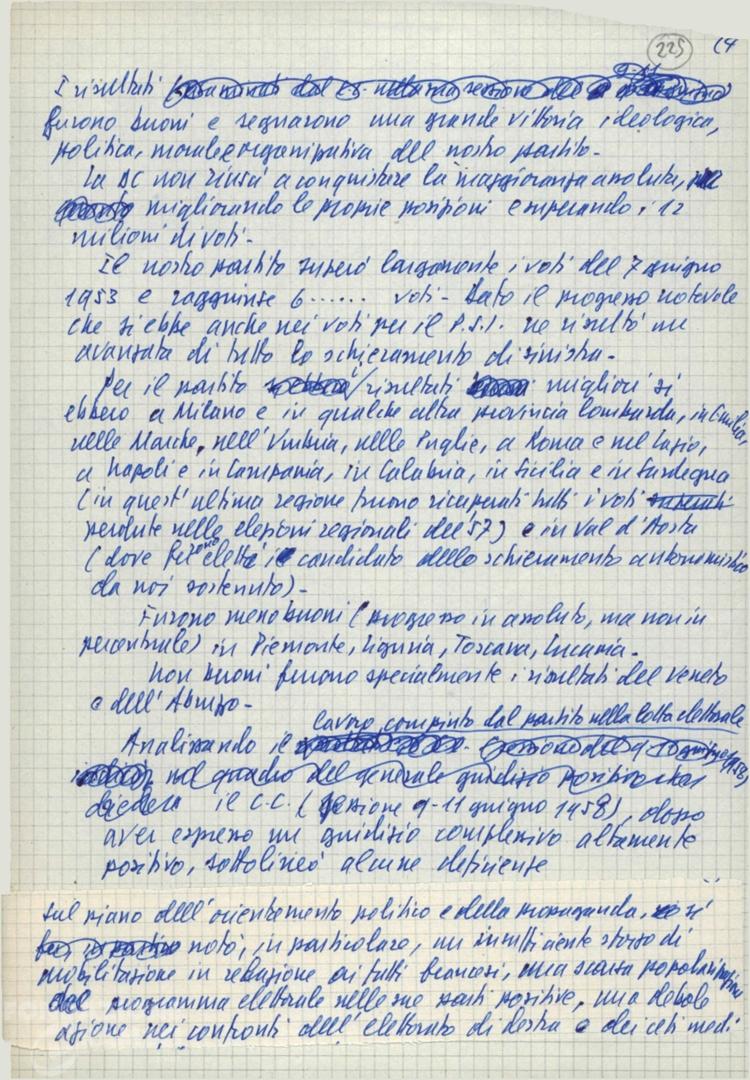 225 (4
I risultati
furono buoni e segnarono una grande vittoria ideologica,
politica, morale e organizzativa dell nostro partito.
La DC non riuscì a conquistare la maggioranza assoluta,
migliorando le proprie posizioni e superando i 12
milioni di voti.
Il nostro partito superò largamente i voti del 7 giugno
1953 e raggiunse 6...... voti. Dato il progresso notevole
che si ebbe anche nei voti per il P.S.I. ne risultò un
avanzata di tutto lo schieramento di sinistra.
Per il partito risultati migliori si
ebbero a Milano e in qualche altra provincia lombarda, in Emilia,
nelle Marche, nell'Umbria, nelle Puglie, a Roma e nel Lazio,
a Napoli e in Campania, in Calabria, in Sicilia e in Sardegna
(in quest'ultima regione furono ricuperati tutti i voti
perdute nelle elezioni regionali del '57) e in Val d'Aosta
(dove il candidato dello schieramento autonomistico
da noi sostenuto).
Furono meno buoni (progresso in assoluto, ma non in
percentuale) in Piemonte, Liguria, Toscana, Lucania.
Non buoni furono specialmente i risultati del Veneto
e dell'Abruzzo.
lavoro compiuto dal partito nella lotta elettorale
Analizzando il
nel quadro del generale giudizio positivo che
diedero il C.C. (sessione 9-11 giugno 1958), dopo
aver espresso un giudizio complessivo altamente
positivo, sottolineò alcune deficienze
sul piano dell'orientamento politico e della propaganda, si
notò, in particolare, un insufficiente sforzo di
mobilitazione in relazione ai fatti francesi, una scarsa popolarizzazione
del programma elettorale nelle sue parti positive, una debole
azione nei confronti dell'elettorato di destra e dei ceti medi